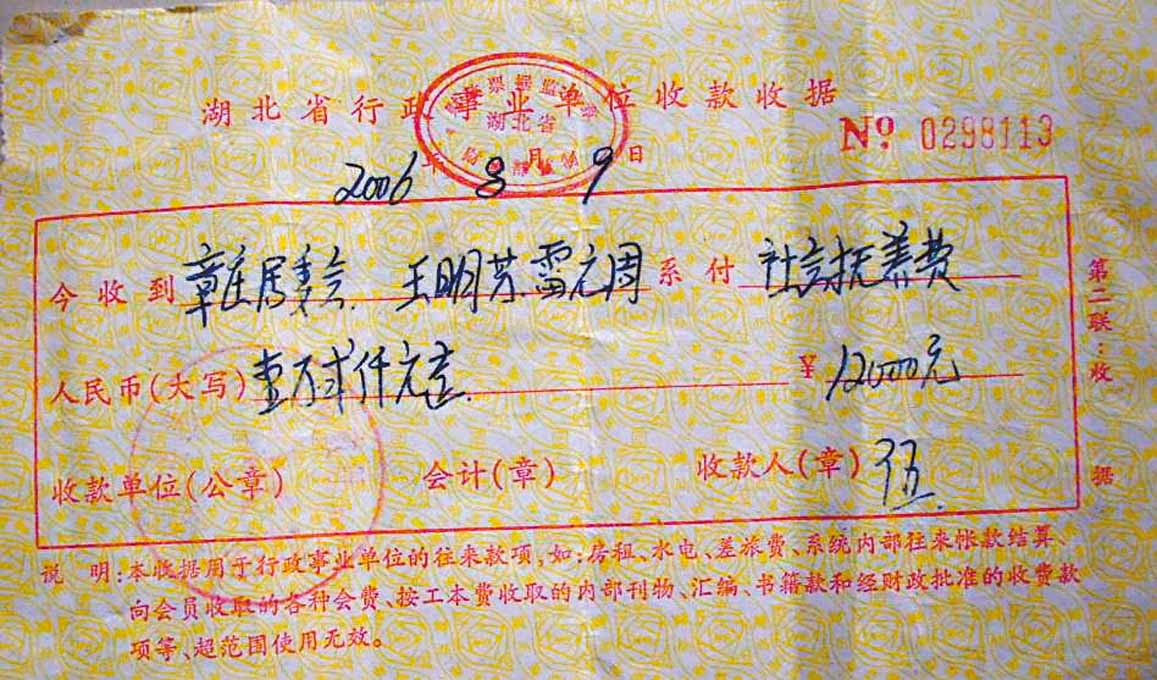 湖北省行政事业单位收款收据
湖北省
No 0298113
2006年8月9日
今收到章庄居委会 王明芳.雷元周系付社会抚养费
人民币(大写)壹万贰仟元整 ¥12000元
收款单位(公章) 会计(章) 收款人(章)伍
第二联:收据
说 明:本收据用于行政事业单位的往来款项,如:房租、水电、差旅费、系统内部往来帐款结算、
向会员收取的各种会费、按工本费收取的内部刊物、汇编、书籍款和经财政批准的收费款
项等、超范围使用无效。